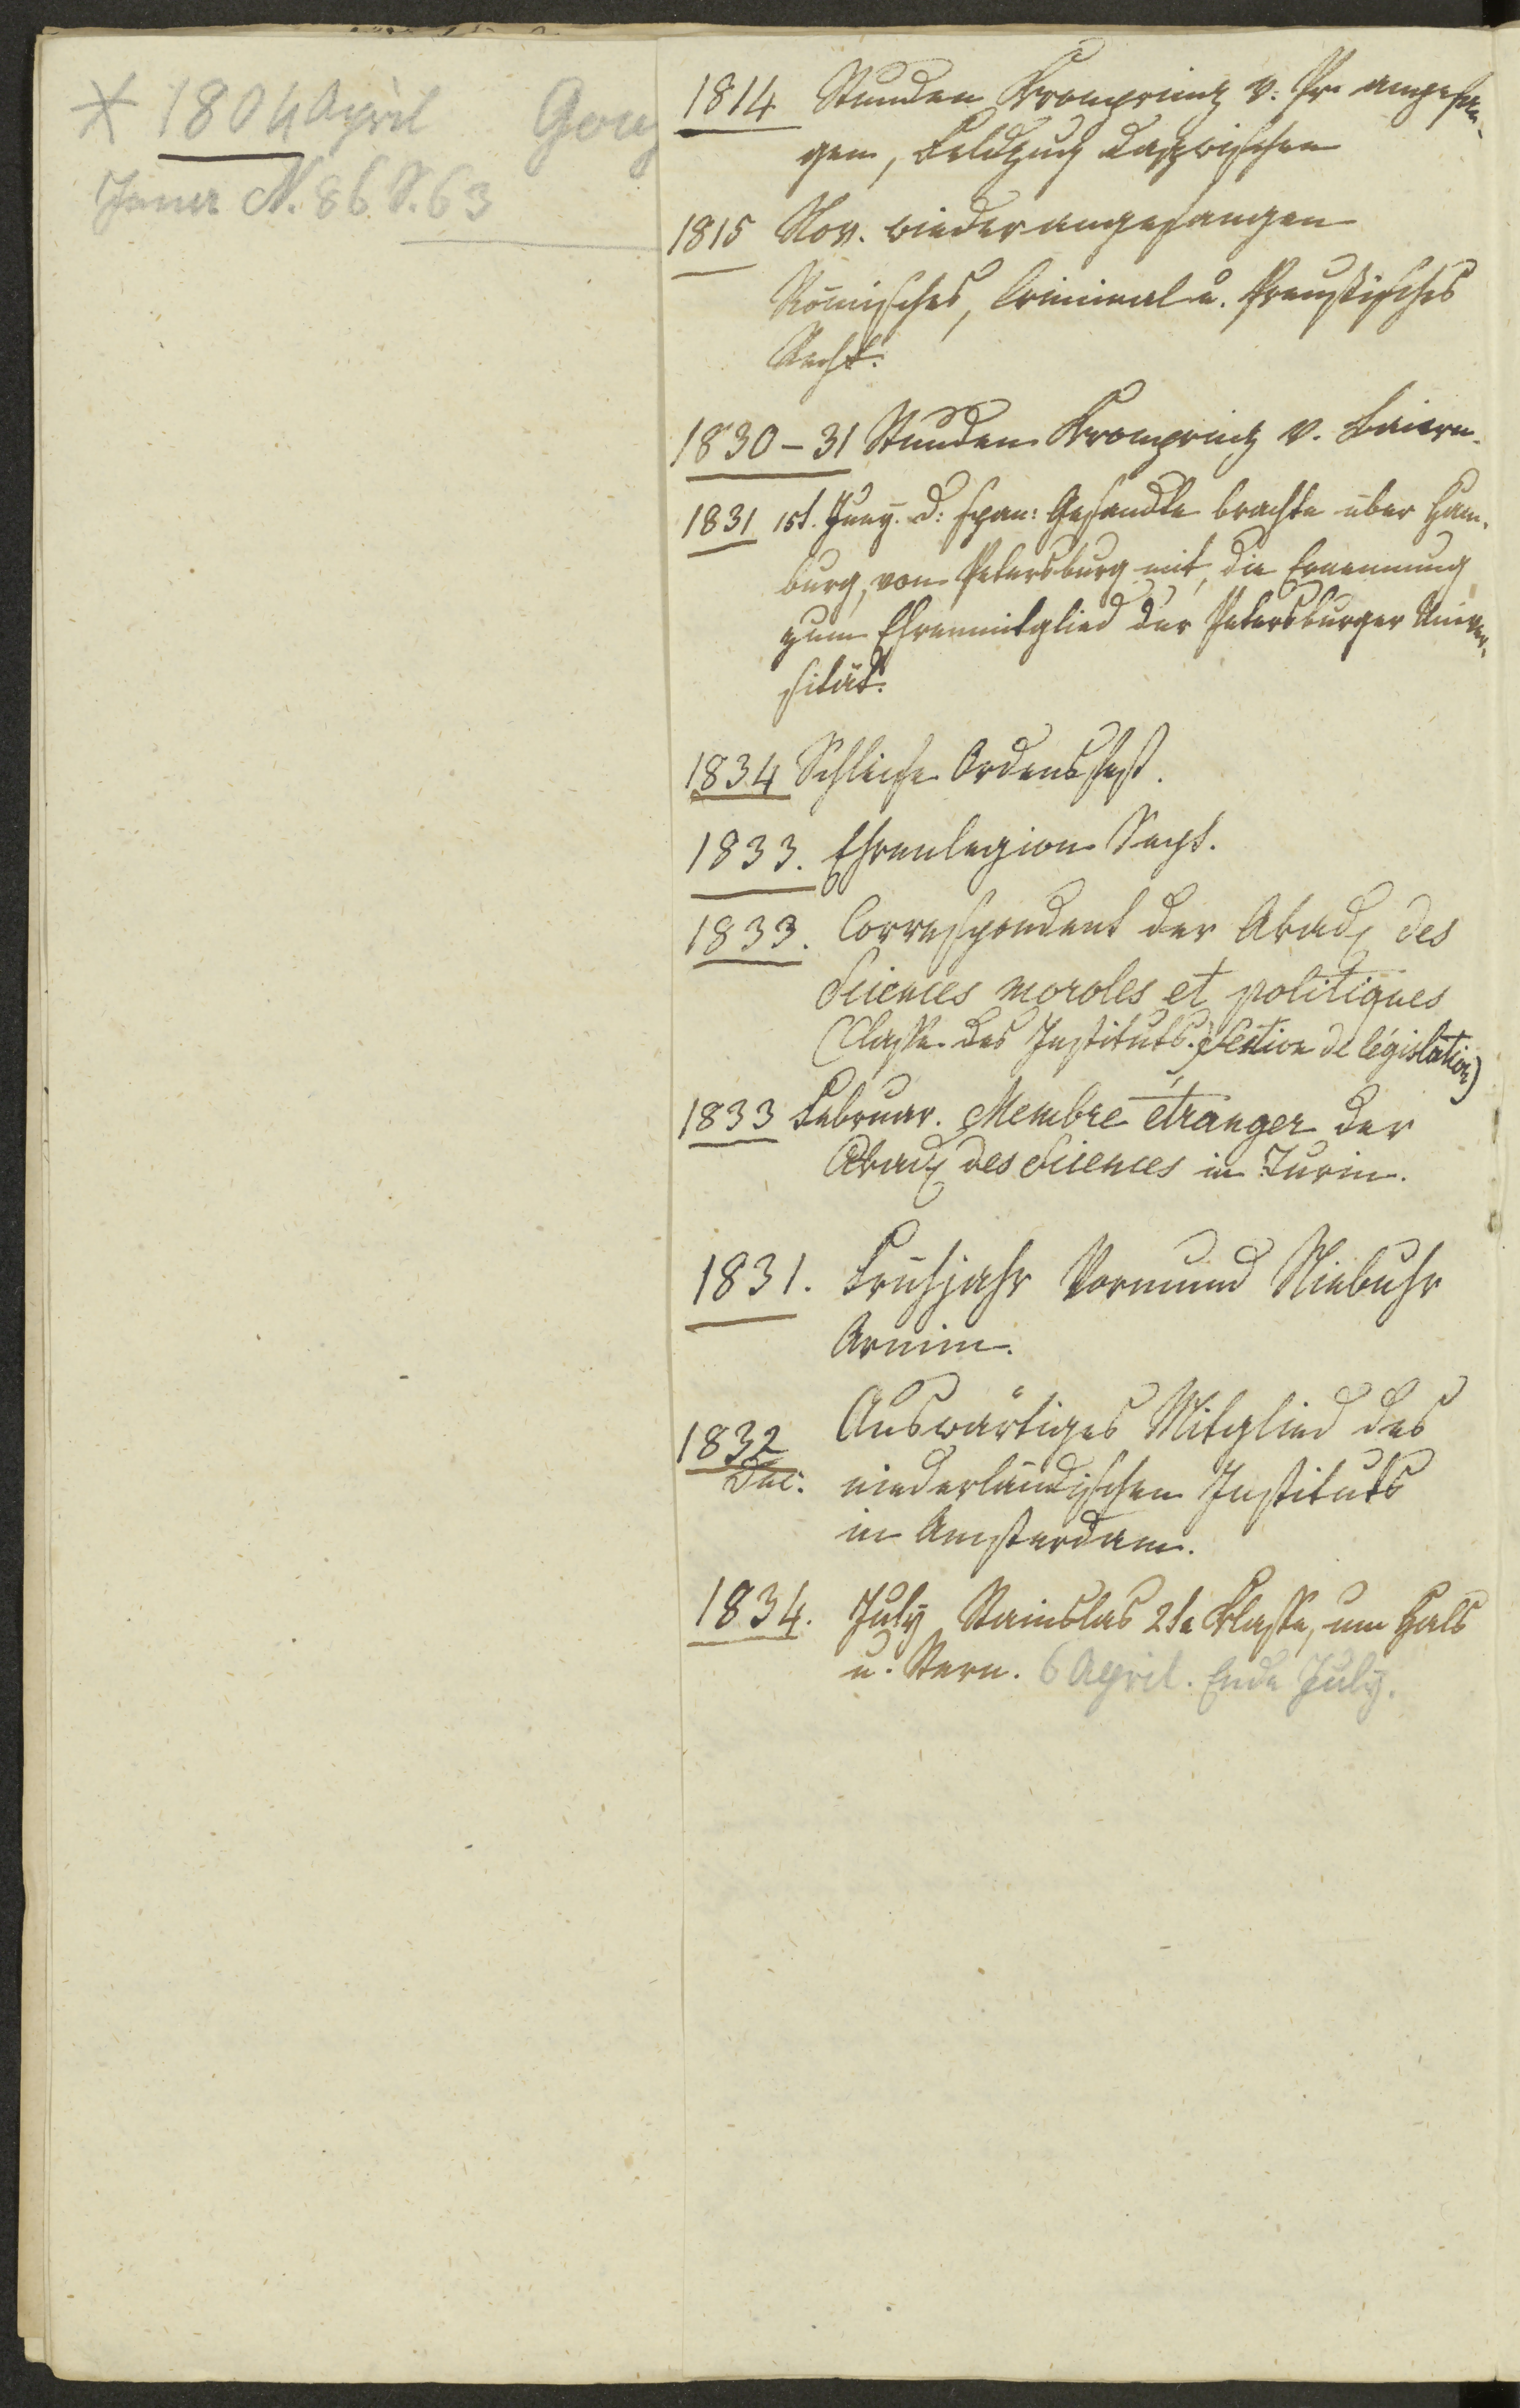 * 1804 April
Jenner N. 86. S. 63
1814 Stunden Kronprinz v. Pr. angefan-
gen, Feldzug dazwischen
1815 Nov. wieder angefangen
Römisches, Criminal u. Preußisches
Recht.
1830-31 Stunden Kronprinz v. Baiern.
1831 1st. Juny. D: span: Gesandte brachte über Ham-
burg, von Petersburg mit, die Ernennung
zum Ehrenmitglied der Petersburger Univer-
sität.
1834 Schleife Ordensfest.
1833. Ehrenlegion Sept.
1833. Correspondent der Akad. des
Sciences morales et politiques
(Classe des Instituts.) Section de législation)
1833 Februar. Membre étranger der
Akad. des Sciences in Turin.
1831. Frühjahr Vormund Niebuhr
Arnim.
1832 Auswärtiges Mitglied des
Dec. niederländischen Instituts
in Amsterdam.
1834. July Stanislas 2te Klasse, um Hals
u. Stern. 6 April. Ende July.